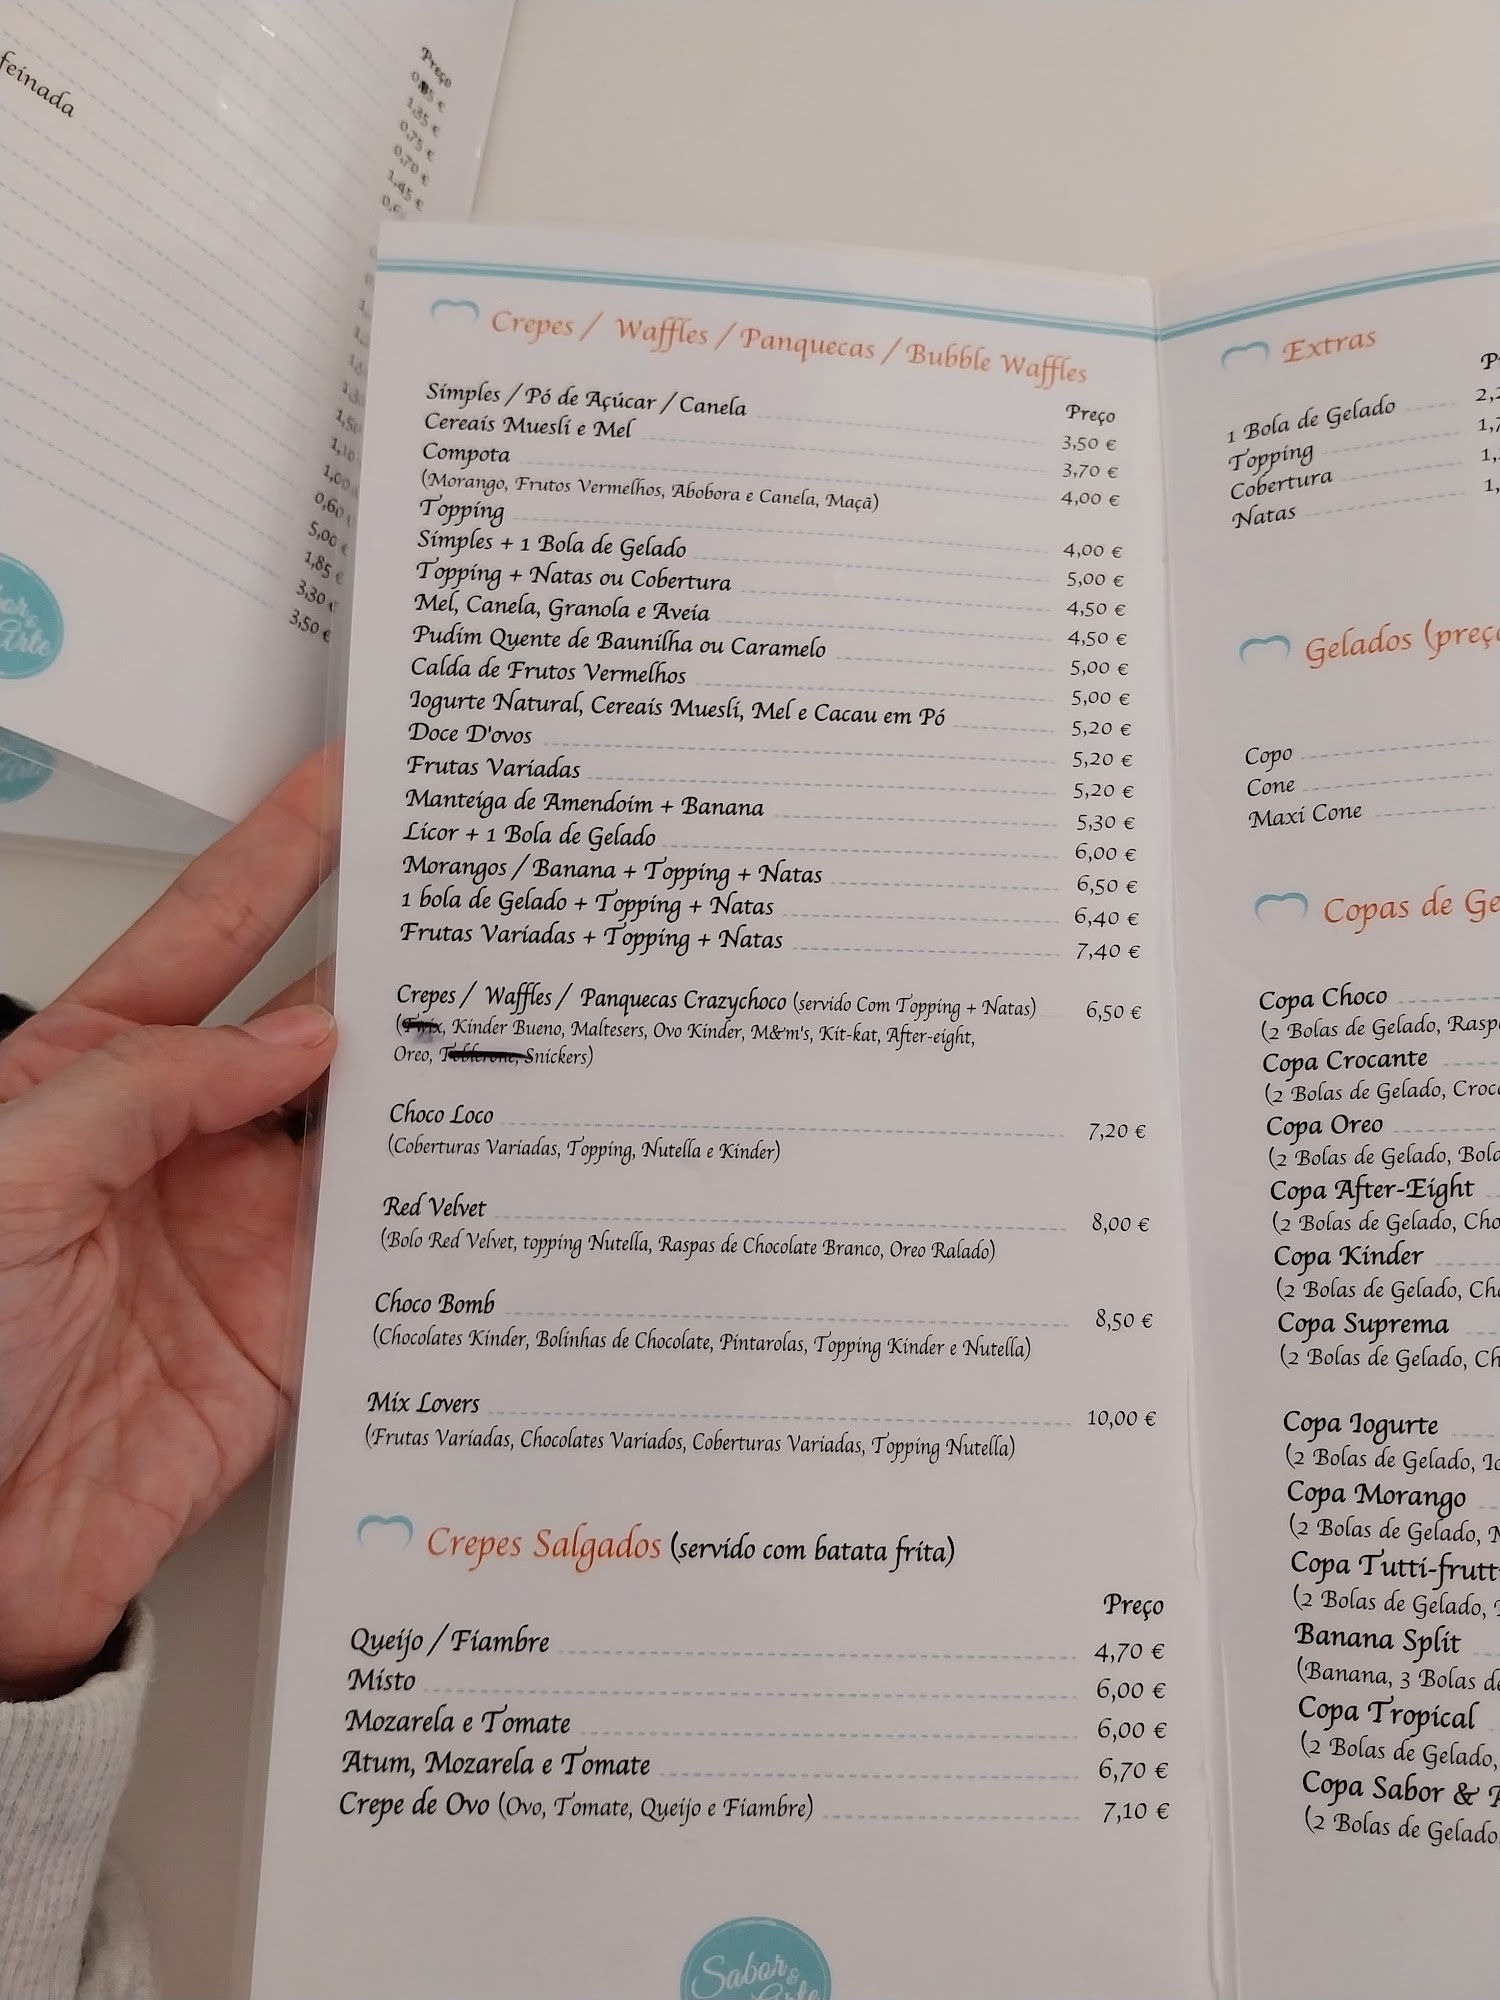 feinada
Preço
1,35 €
0,75 €
0,70 €
1,45 €
1,50
1,10
1,00
0,60 €
5,00 €
1,85 €
3,30 €
3,50 €
Arte
Crepes / Waffles / Panquecas / Bubble Waffles
Preço
Simples / Pó de Açúcar / Canela 3,50 €
Cereais Muesli e Mel 3,70 €
Compota 4,00 €
(Morango, Frutos Vermelhos, Abobora e Canela, Maçã)
Topping 4,00 €
Simples + 1 Bola de Gelado 5,00 €
Topping + Natas ou Cobertura 4,50 €
Mel, Canela, Granola e Aveia 4,50 €
Pudim Quente de Baunilha ou Caramelo 5,00 €
Calda de Frutos Vermelhos 5,00 €
Iogurte Natural, Cereais Muesli, Mel e Cacau em Pó 5,20 €
Doce D'ovos 5,20 €
Frutas Variadas 5,20 €
Manteiga de Amendoim + Banana 5,30 €
Licor + 1 Bola de Gelado 6,00 €
Morangos / Banana + Topping + Natas 6,50 €
1 bola de Gelado + Topping + Natas 6,40 €
Frutas Variadas + Topping + Natas 7,40 €
Crepes / Waffles / Panquecas Crazychoco (servido Com Topping + Natas) 6,50 €
(Twix, Kinder Bueno, Maltesers, Ovo Kinder, M&m's, Kit-kat, After-eight,
Oreo, Toblerone, Snickers)
Choco Loco 7,20 €
(Coberturas Variadas, Topping, Nutella e Kinder)
Red Velvet 8,00 €
(Bolo Red Velvet, topping Nutella, Raspas de Chocolate Branco, Oreo Ralado)
Choco Bomb 8,50 €
(Chocolates Kinder, Bolinhas de Chocolate, Pintarolas, Topping Kinder e Nutella)
Mix Lovers 10,00 €
(Frutas Variadas, Chocolates Variados, Coberturas Variadas, Topping Nutella)
Crepes Salgados (servido com batata frita)
Preço
Queijo / Fiambre 4,70 €
Misto 6,00 €
Mozarela e Tomate 6,00 €
Atum, Mozarela e Tomate 6,70 €
Crepe de Ovo (Ovo, Tomate, Queijo e Fiambre) 7,10 €
Sabor &
Arte
Extras
1 Bola de Gelado 2,2
Topping 1,7
Cobertura 1,
Natas 1,
Gelados (preço
Copo
Cone
Maxi Cone
Copas de Ge
Copa Choco
(2 Bolas de Gelado, Rasp
Copa Crocante
(2 Bolas de Gelado, Croc
Copa Oreo
(2 Bolas de Gelado, Bola
Copa After-Eight
(2 Bolas de Gelado, Cho
Copa Kinder
(2 Bolas de Gelado, Cho
Copa Suprema
(2 Bolas de Gelado, Ch
Copa Iogurte
(2 Bolas de Gelado, Io
Copa Morango
(2 Bolas de Gelado, M
Copa Tutti-frutt
(2 Bolas de Gelado,
Banana Split
(Banana, 3 Bolas de
Copa Tropical
(2 Bolas de Gelado,
Copa Sabor &
(2 Bolas de Gelado,